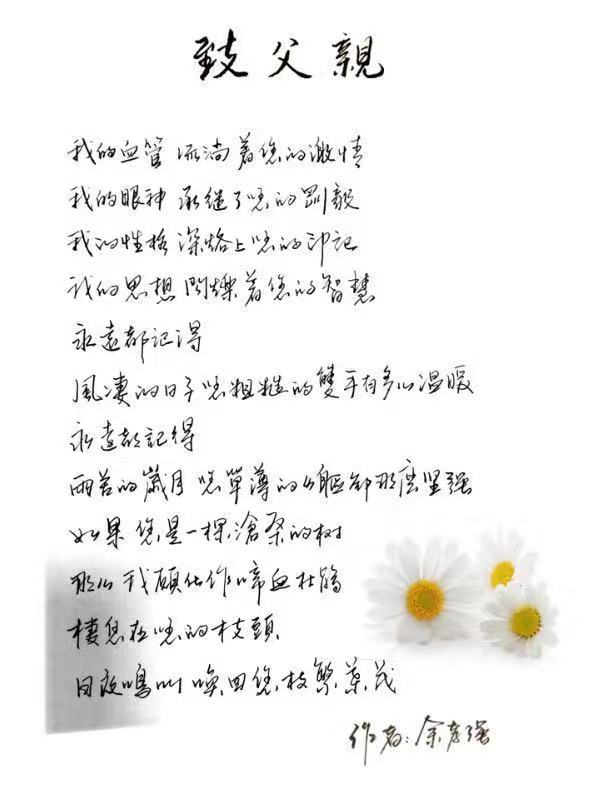 致父親
我的血管 流淌着您的激情
我的眼神 承继了您的剛毅
我的性格 深烙上您的印記
我的思想 閃爍着您的智慧
永遠都记得
風凄的日子 您粗糙的雙手有多么温暖
永遠都記得
雨苦的歲月 您單薄的身軀却那麽坚强
如果 您是一棵滄桑的树
那么 我願化作啼血杜鹃
棲息在您的枝頭
日夜鳴叫 唤回您枝繁葉茂
作者:余孝强